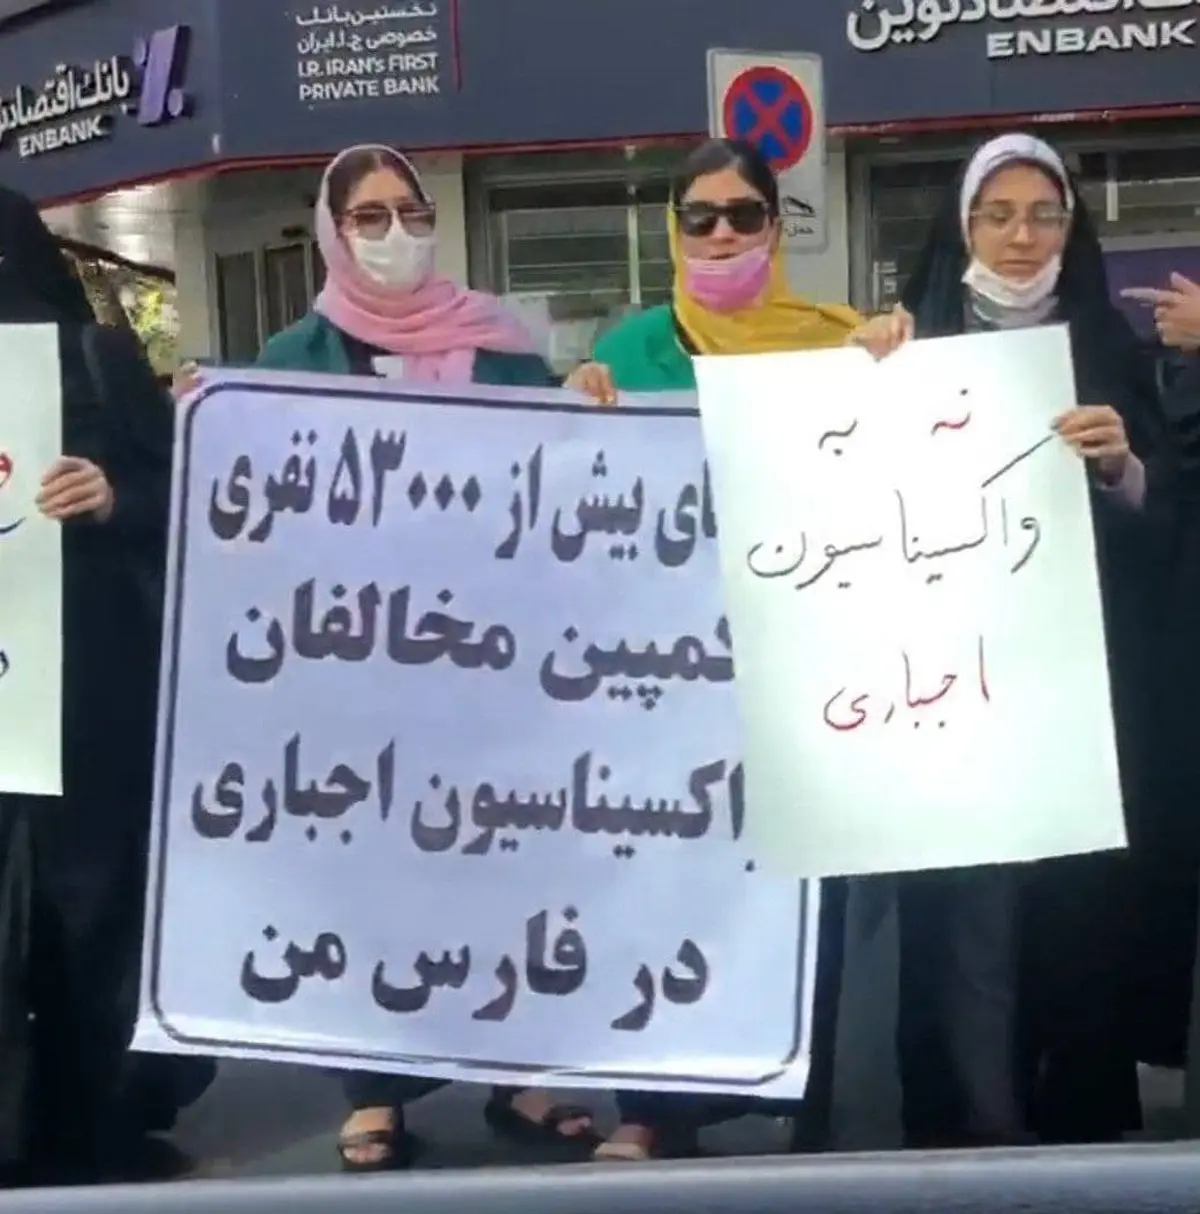 نخستین بانک
خصوصی ج.ا.ایران
I.R. IRAN's FIRST
PRIVATE BANK
بانک اقتصاد
ENBANK
اقتصاد نوین
ENBANK
حمل
بیش از ۵۳۰۰۰ نفری
کمپین مخالفان
واکسیناسیون اجباری
در فارس من
نه به
واکسیناسیون
اجباری